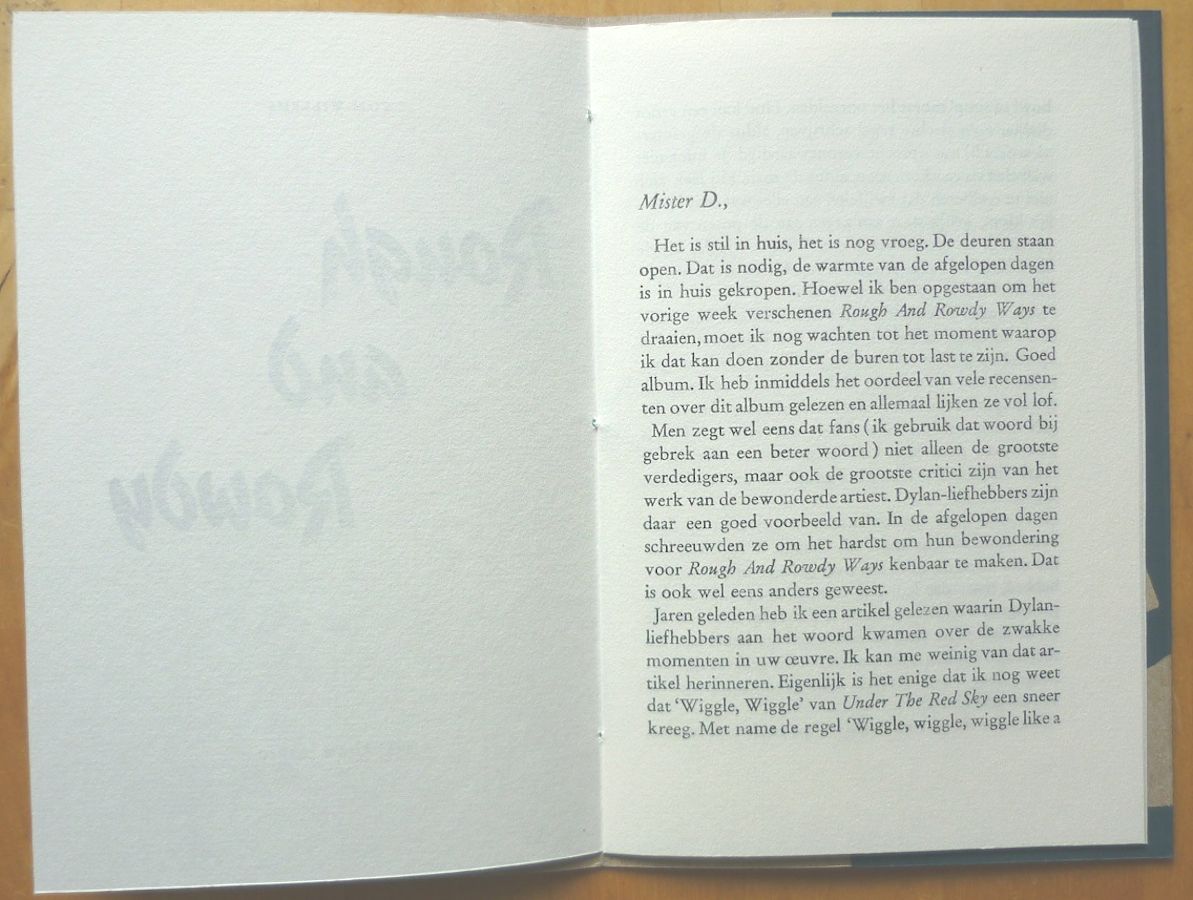 Rough
and
Rowdy
Mister D.,
Het is stil in huis, het is nog vroeg. De deuren staan
open. Dat is nodig, de warmte van de afgelopen dagen
is in huis gekropen. Hoewel ik ben opgestaan om het
vorige week verschenen Rough And Rowdy Ways te
draaien, moet ik nog wachten tot het moment waarop
ik dat kan doen zonder de buren tot last te zijn. Goed
album. Ik heb inmiddels het oordeel van vele recensen-
ten over dit album gelezen en allemaal lijken ze vol lof.
Men zegt wel eens dat fans (ik gebruik dat woord bij
gebrek aan een beter woord) niet alleen de grootste
verdedigers, maar ook de grootste critici zijn van het
werk van de bewonderde artiest. Dylan-liefhebbers zijn
daar een goed voorbeeld van. In de afgelopen dagen
schreeuwden ze om het hardst om hun bewondering
voor Rough And Rowdy Ways kenbaar te maken. Dat
is ook wel eens anders geweest.
Jaren geleden heb ik een artikel gelezen waarin Dylan-
liefhebbers aan het woord kwamen over de zwakke
momenten in uw œuvre. Ik kan me weinig van dat ar-
tikel herinneren. Eigenlijk is het enige dat ik nog weet
dat ‘Wiggle, Wiggle’ van Under The Red Sky een sneer
kreeg. Met name de regel ‘Wiggle, wiggle, wiggle like a